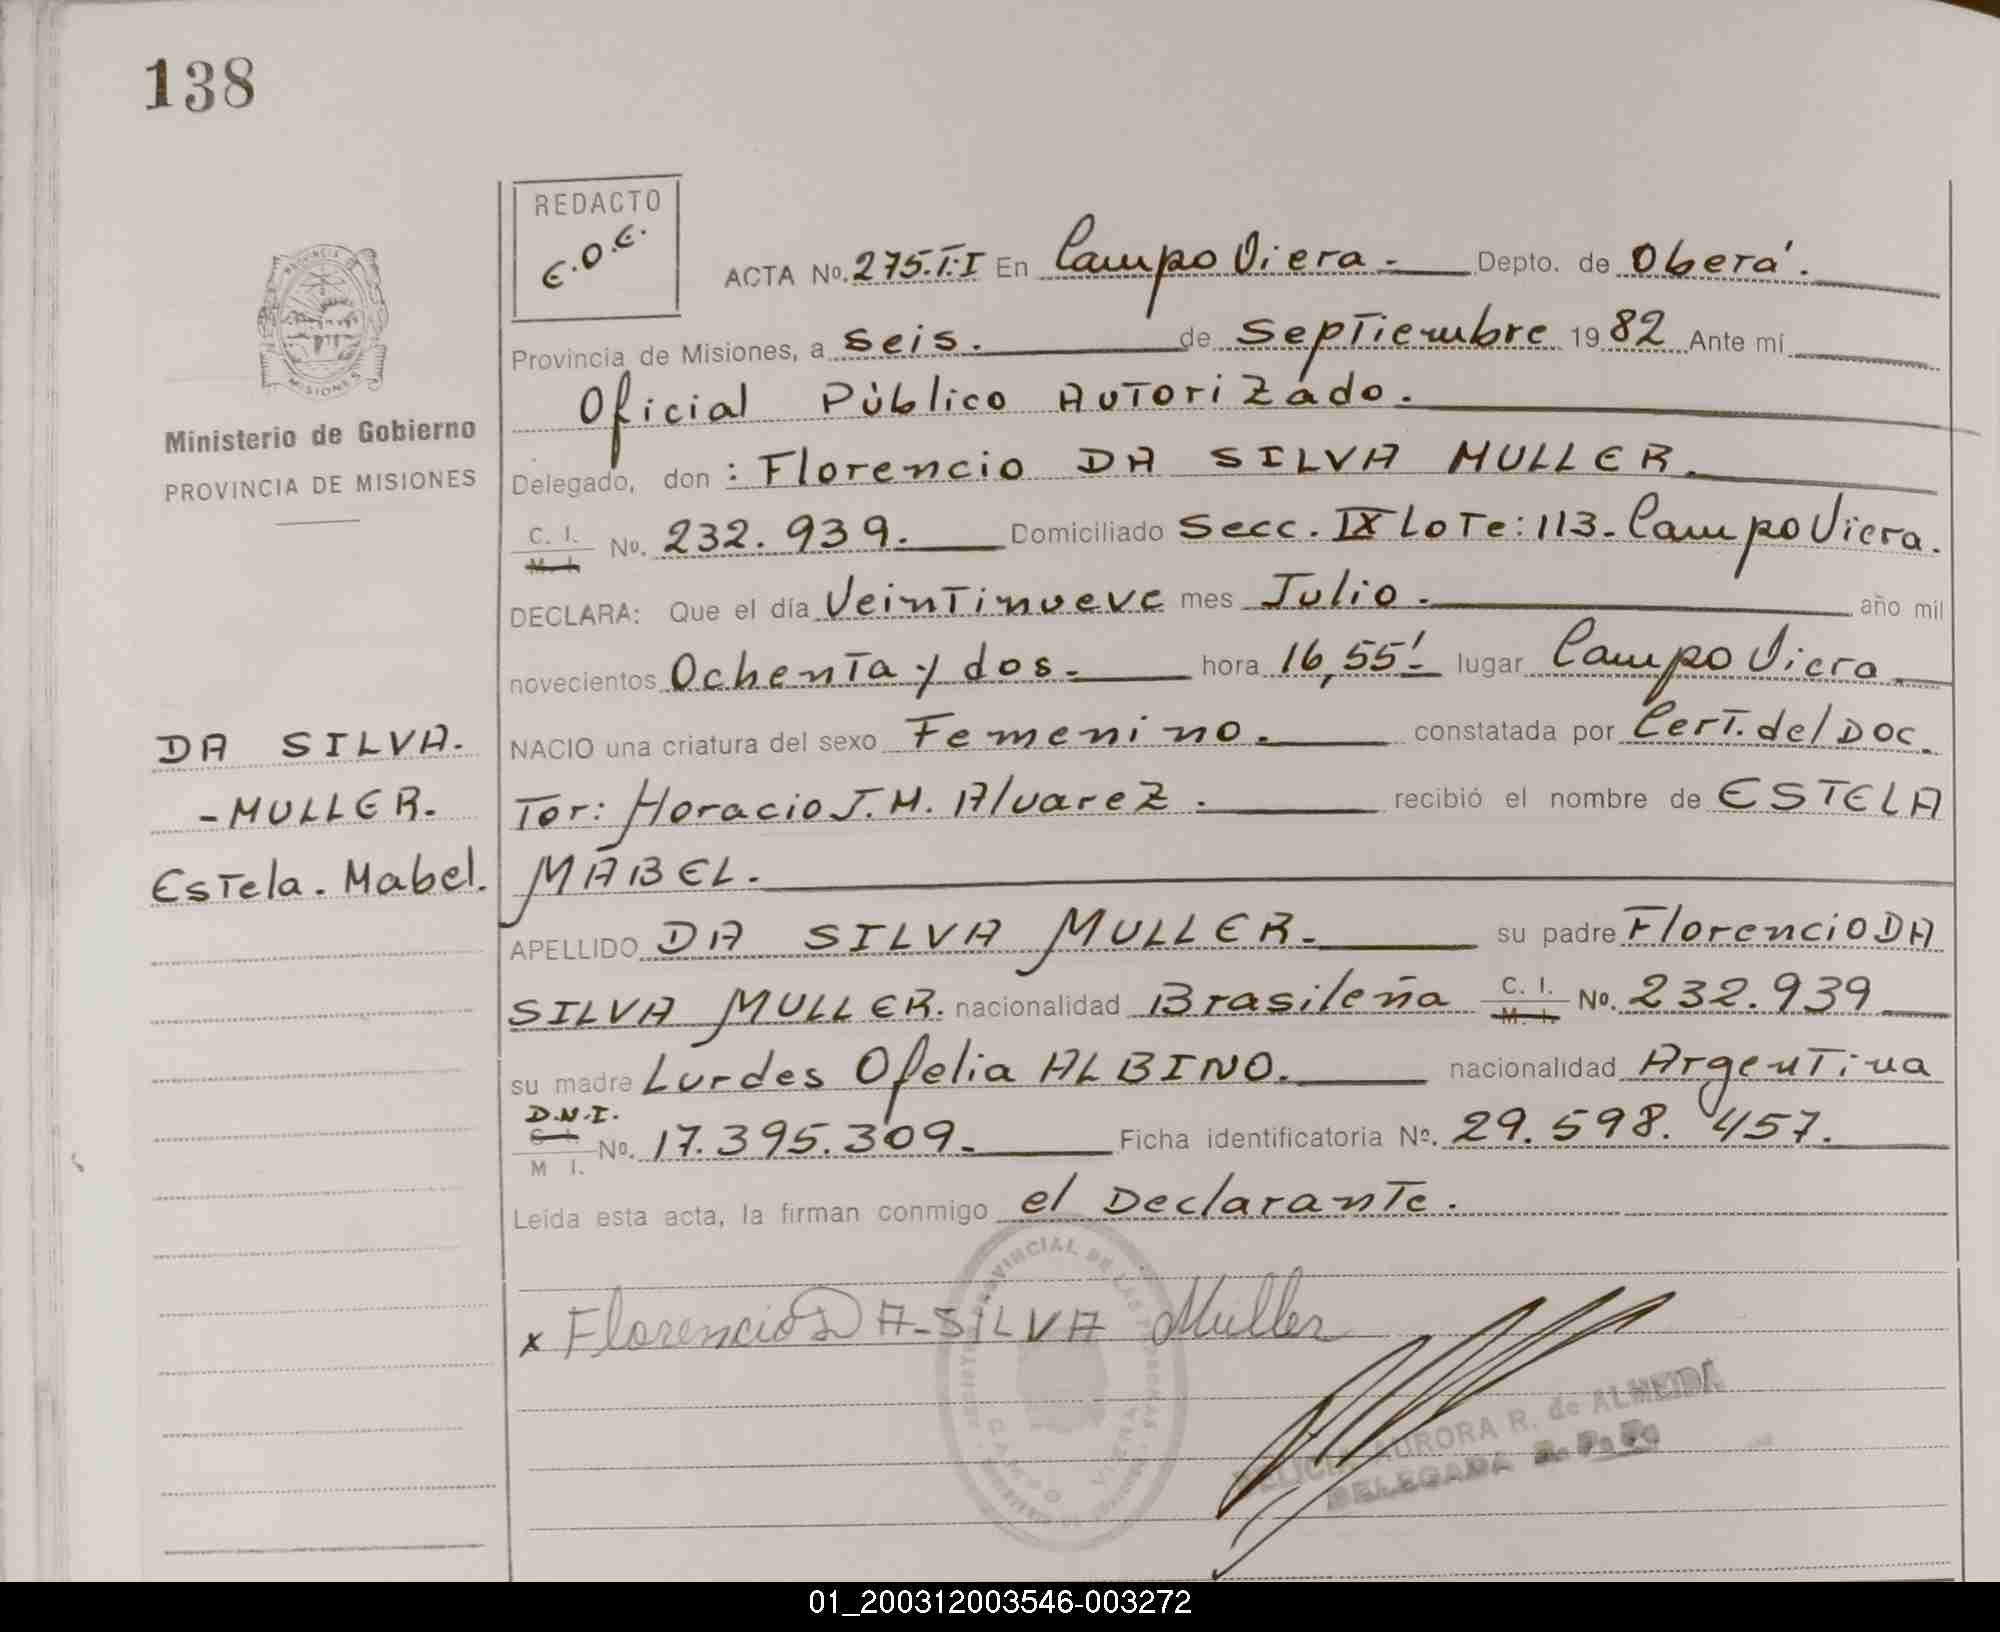 138
REDACTO
E.O.E.
ACTA No. 275.T.I En Campo Viera.- Depto. de Oberá.
Provincia de Misiones, a seis. de Septiembre 1982 Ante mí
Oficial Público Autorizado.
Delegado, don : Florencio DA SILVA MULLER.
C. I. M. I. No. 232.939. Domiciliado Secc. IX Lote: 113- Campo Viera.
DECLARA: Que el día Veintinueve mes Julio. año mil
novecientos Ochenta y dos. hora 16,55' lugar Campo Viera
NACIO una criatura del sexo Femenino. constatada por Cert. del Doc
tor: Horacio J.M. Alvarez. recibió el nombre de ESTELA
MABEL.
APELLIDO DA SILVA MULLER. su padre Florencio DA
SILVA MULLER. nacionalidad Brasileña C. I. M. I. No. 232.939
su madre Lurdes Ofelia ALBINO. nacionalidad Argentina
D.N.I. C. I. M I. No. 17.395.309. Ficha identificatoria No. 29.598.457.
Leída esta acta, la firman conmigo el Declarante.
x Florencio DA-SILVA Muller
AURORA R. de ALMEIDA
DELEGADA
Ministerio de Gobierno
PROVINCIA DE MISIONES
DA SILVA.
-MULLER.
Estela. Mabel.
PROVINCIA DE MISIONES
PROVINCIAL DE LAS PERSONAS
CAMPO VIERA
01_200312003546-003272